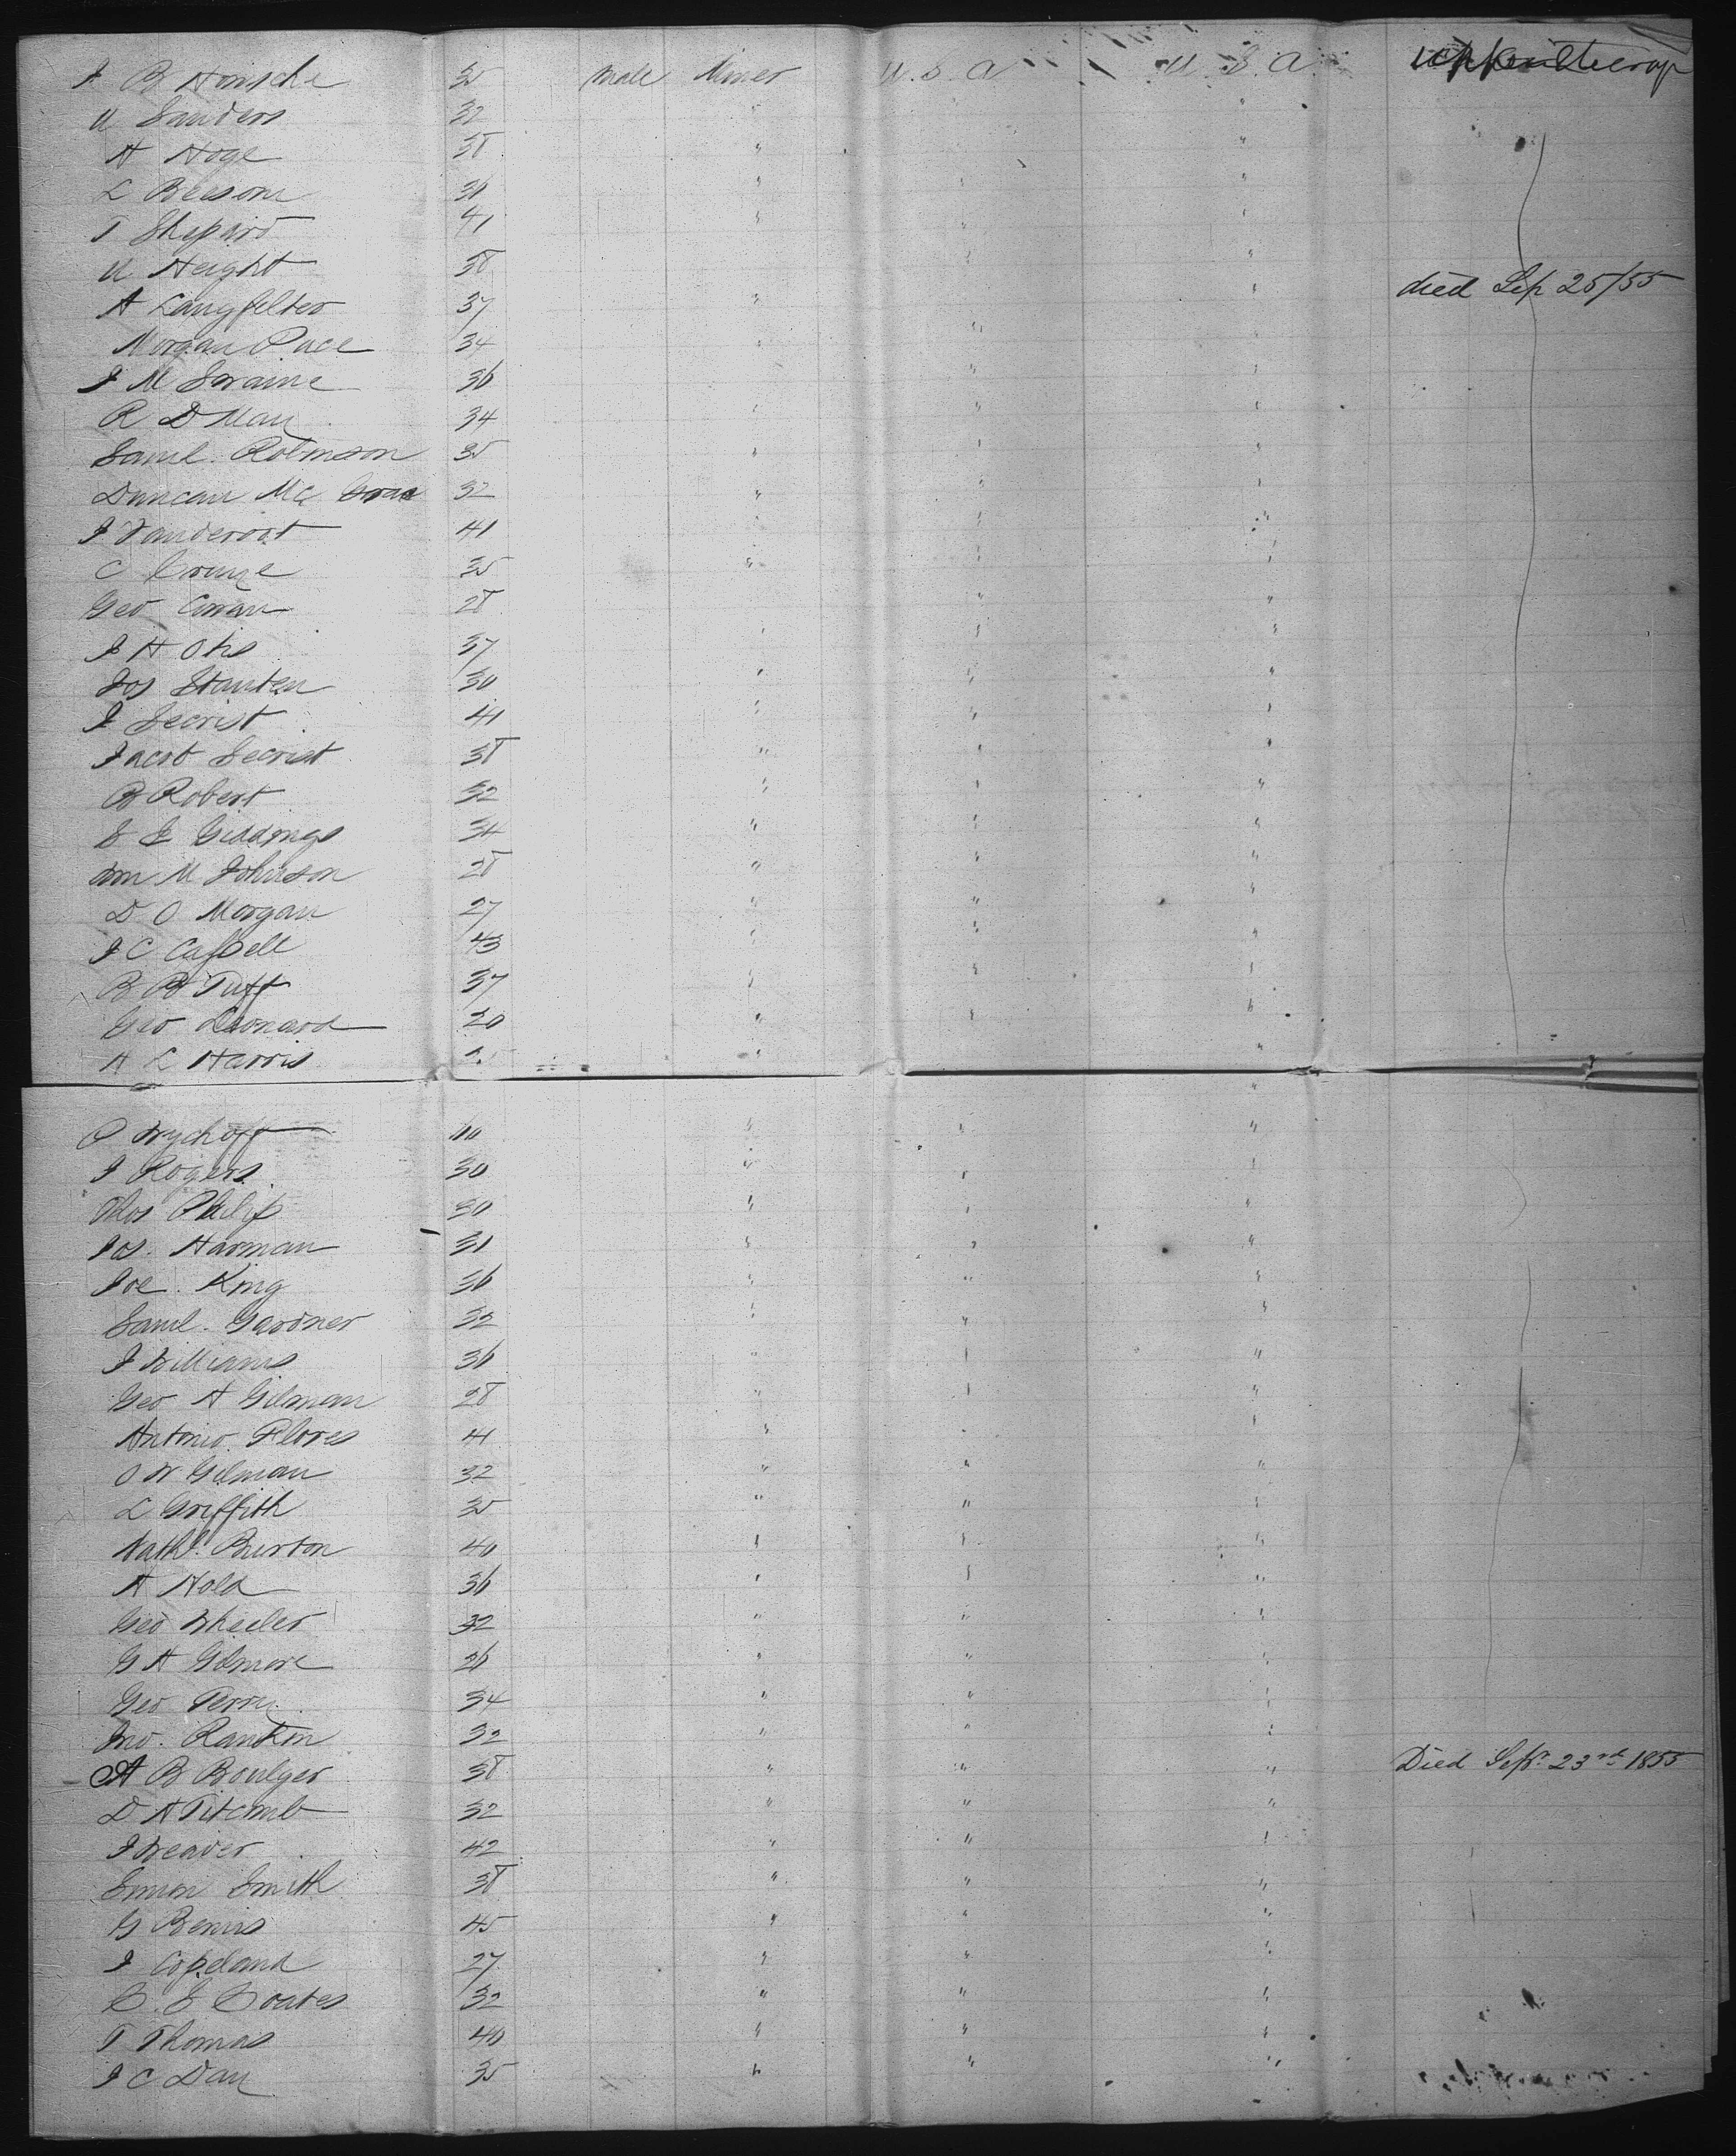 J B 35 male Miner U. S. A U. S. A.
U Sanders 32 "
H Hoge 38 " "
L Beesom 36 " " "
T Shepard 41 " " "
U Height 38 "
A Langfelter 37 " " died Sep 25/55
Morgan Pace 34 " " "
J M Loraine 36 " "
R D May 34 " " "
Saml. Robinson 35 " " "
Duncan Mc 32 " " "
J Vanderoot 41 " "
C 35 " " "
Geo 28 " "
J H Otis 37 " " "
Jos Stanten 30 " " "
J Secrist 41 " " "
Jacob Secrist 38 " " "
B Robert 32 " " "
S E Giddings 34 " " "
Wm M Johnson 28 " " "
D O Morgan 27 " " "
J C 43 " " "
B B Tuft 37 " " "
Geo Leonard 20 " " "
A L Harris " "
P Wychoff " " "
J Rogers 30 " " "
Thos Philip 30 " " "
Jos. Harman 31 " " "
Joe. King 36 " " "
Saml. Gardner 32 " " "
J Williams 36 " " "
Geo A Gilman 28 " " "
Antonio Flores 41 " " "
O W Gilman 32 " " "
L Griffith 35 " " "
Nathl. Burton 40 " " "
A Hold 36 " " "
Geo Wheeler 32 " " "
G A Gilmore 26 " " "
Geo Perry 34 " " "
Jno. Rankin 32 " " "
A B Boulger 38 " " " Died Sepr. 23rd 1855
D A Titcomb 32 " " "
J Weaver 42 " " "
Simon Smith 38 " " "
G Bemis 45 " " "
J Copeland 27 " " "
C. S Coates 32 " " "
T Thomas 40 " " "
J C Day 35 " " "